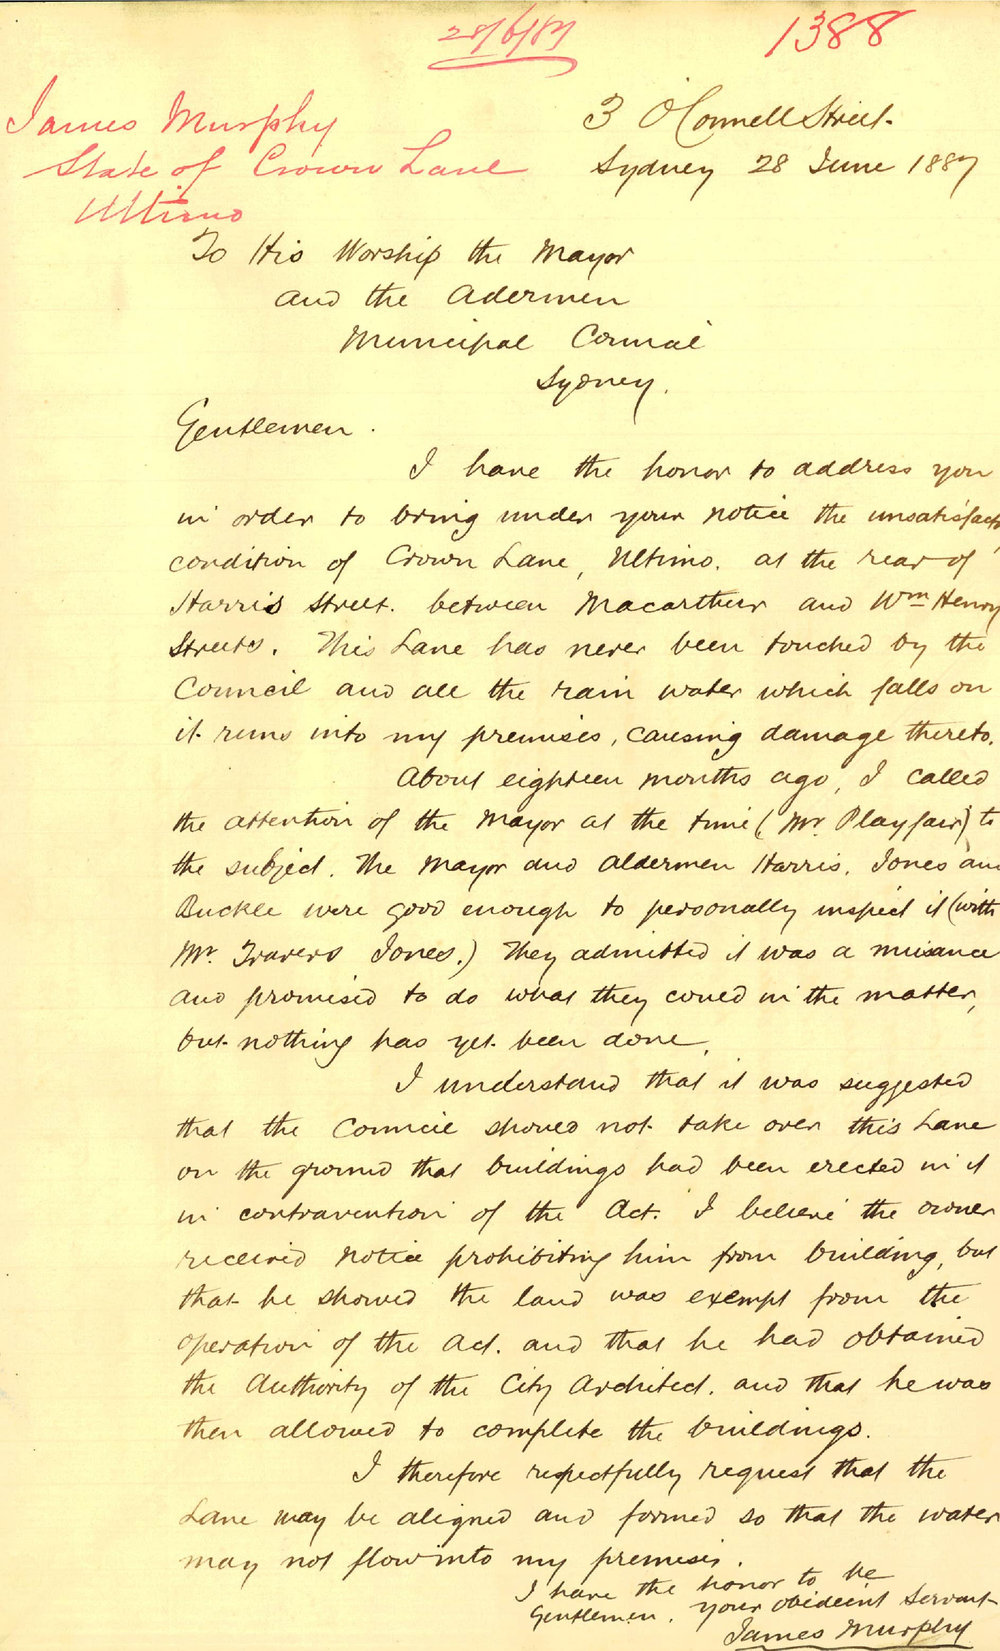 28/6/87
1388
James Murphy
State of Crown Lane
Ultimo
3 O'Connell Street.
Sydney 28 June 1887
To His Worship the Mayor
and the Adermen
Municipal Council
Sydney.
Gentlemen.
I have the honor to address you
in order to bring under your notice the unsatisfact
condition of Crown Lane, Ultimo. at the rear of
Harris Street. between Macarthur and Wm Henry
Streets. This Lane has never been touched by the
Council and all the rain water which falls on
it runs into my premises, causing damage thereto.
About eighteen months ago, I called
the attention of the Mayor at the time (Mr. Playfair) to
the subject. The Mayor and Aldermen Harris, Jones and
Buckle were good enough to personally inspect it (with
Mr. Travers Jones.) They admitted it was a nuisance
and promised to do what they could in the matter,
but nothing has yet been done.
I understand that it was suggested
that the Council should not take over this Lane
on the ground that buildings had been erected in it
in contravention of the Act. I believe the owner
received notice prohibiting him from building, but
that he showed the land was exempt from the
operation of the Act. and that he had obtained
the Authority of the City Architect. and that he was
then allowed to complete the buildings.
I therefore respectfully request that the
Lane may be aligned and formed so that the water
may not flow into my premises.
I have the honor to be
Gentlemen. your obedient Servant
James Murphy